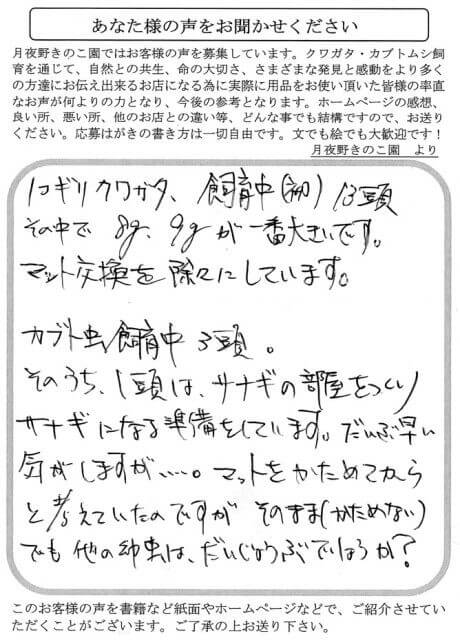 あなた様の声をお聞かせください
月夜野きのこ園ではお客様の声を募集しています。クワガタ・カブトムシ飼
育を通じて、自然との共生、命の大切さ、さまざまな発見と感動をより多く
の方達にお伝え出来るお店になる為に実際に用品をお使い頂いた皆様の率直
なお声が何よりの力となり、今後の参考となります。ホームページの感想、
良い所、悪い所、他のお店との違い等、どんな事でも結構ですので、お送り
ください。応募はがきの書き方は一切自由です。文でも絵でも大歓迎です！
月夜野きのこ園　より
ノコギリクワガタ、飼育中(初) 13頭
その中で 8g、9gが一番大きいです。
マット交換を除々にしています。
カブト虫飼育中 3頭。
そのうち、1頭は、サナギの部屋をつくり
サナギになる準備をしています。だいぶ早い
気がしますが……。マットをかためてから
と考えていたのですが そのまま(かためない)
でも他の幼虫は、だいじょうぶでしょうか?
このお客様の声を書籍など紙面やホームページなどで、ご紹介させてい
ただくことがございます。ご了承の上お送り下さい。